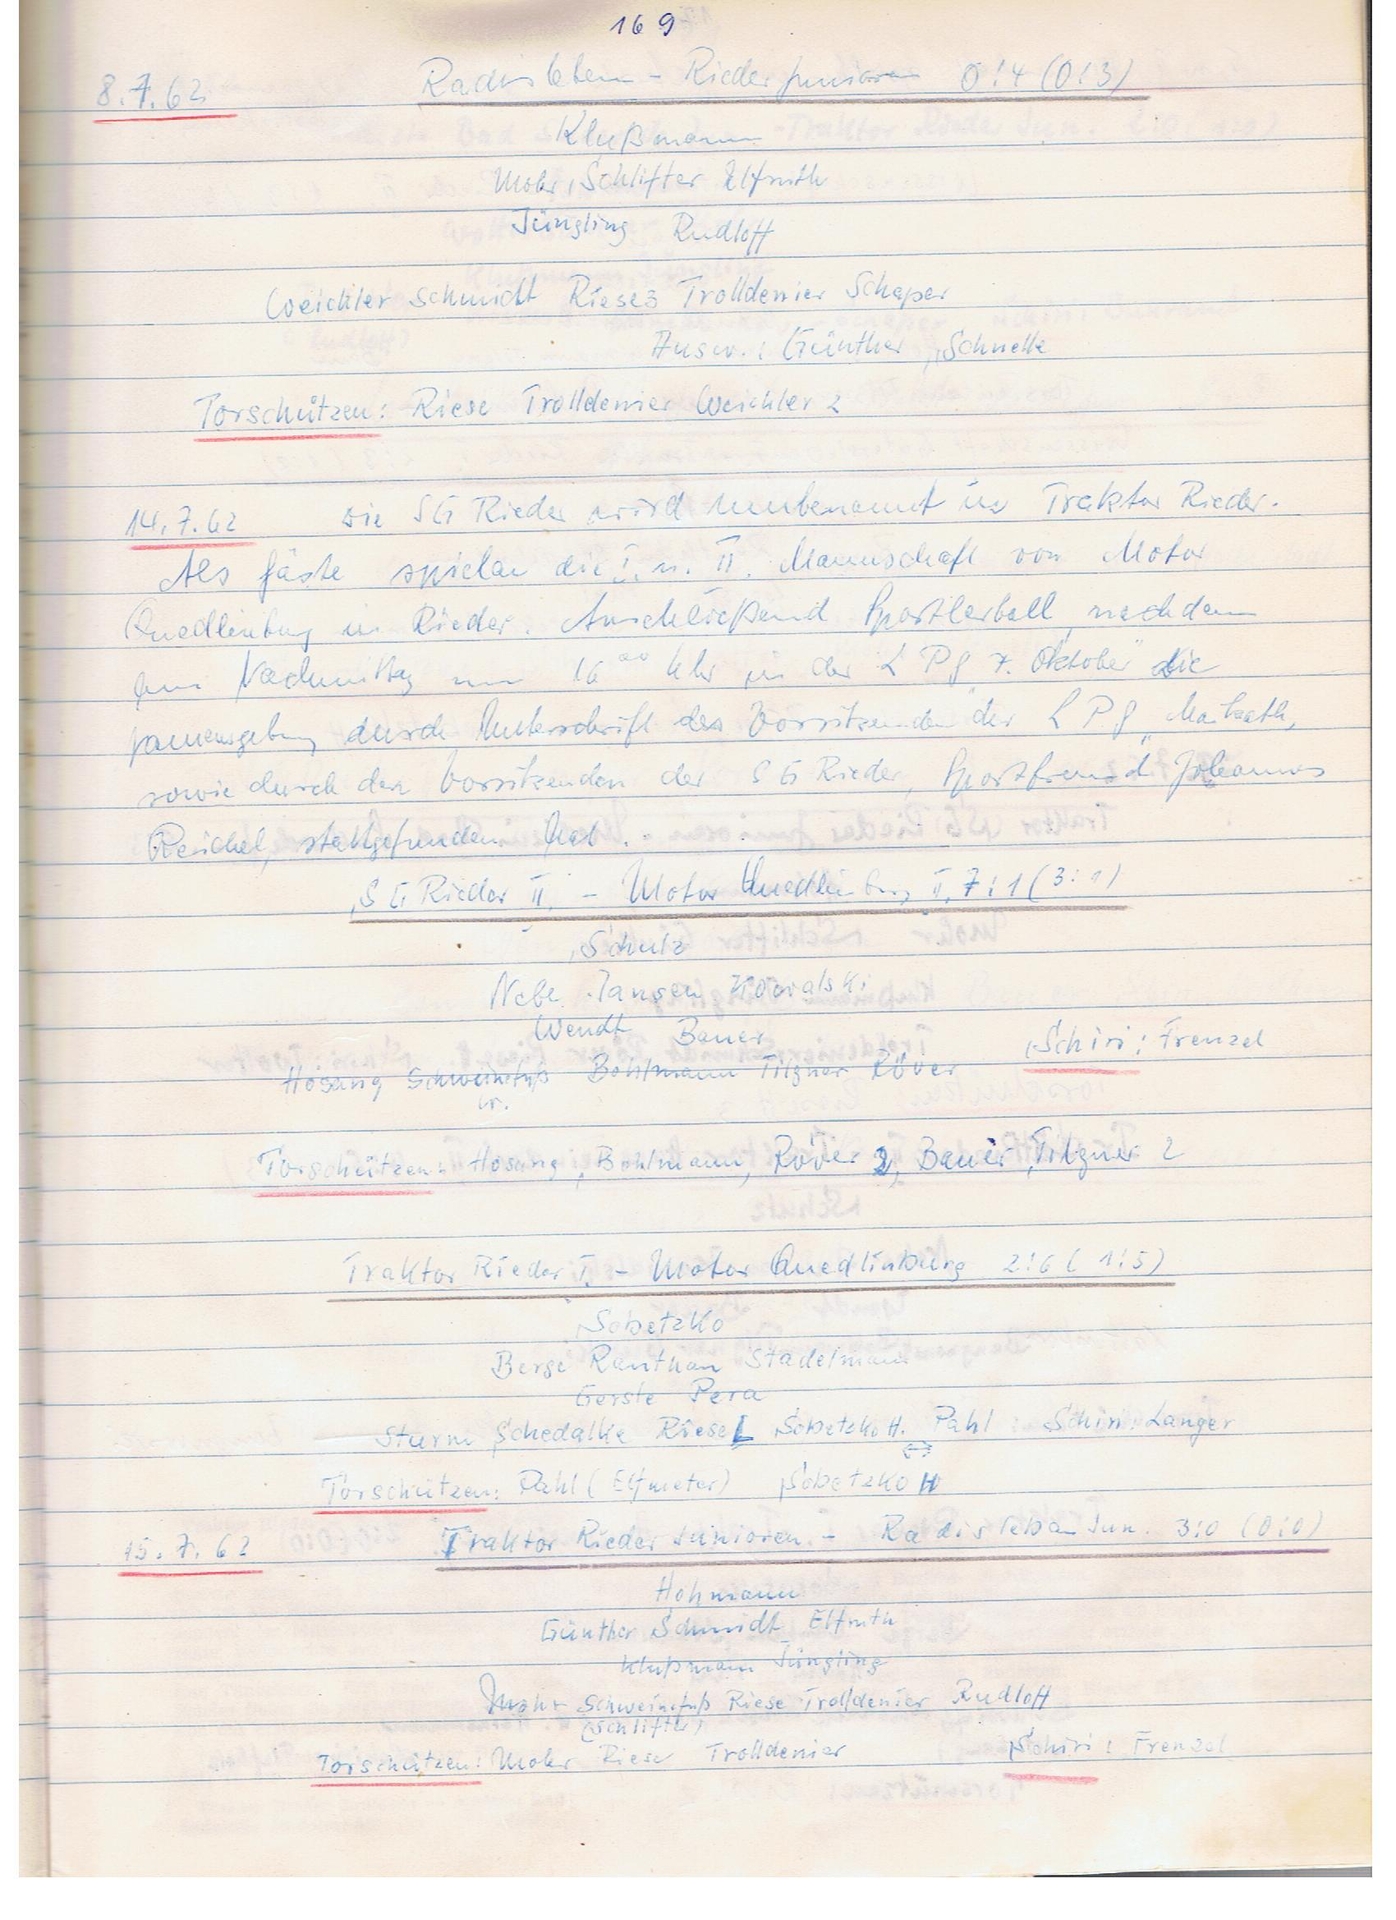 169
8.7.62 Radisleben - Rieder Junioren 0:4 (0:3)
Klußmann
Mohr, Schlifter Elfruth
Jüngling Rudloff
Weichler Schmidt Riese Trolldenier Schaper
Ausw.: Günther, Schnelle
Torschützen: Riese Trolldenier Weichler 2
14.7.62 die SG Rieder wird umbenannt in Traktor Rieder.
Als Gäste spielen die I. u. II. Mannschaft von Motor
Quedlinburg in Rieder. Anschließend Sportlerball, nachdem
am Nachmittag um 16⁰⁰ Uhr in der LPG 7. Oktober" die
Namensgebung durch Unterschrift des Vorsitzenden der LPG,
sowie durch den Vorsitzenden der SG Rieder, Sportfreund Johannes
Reichel, stattgefunden hat.
SG Rieder II. - Motor Quedlinburg II. 7:1 (3:1)
Schulz
Nebe Jansen Kowalski
Wendt Bauer Schiri: Frenzel
Hosang Schweinefuß Bohlmann Tilgner Röver
W.
Torschützen: Hosang, Bohlmann, Röver 2, Bauer, Tilgner 2
Traktor Rieder I. - Motor Quedlinburg 2:6 (1:5)
Sobetzko
Berge Ranthan Stadelmann
Gerste Pera
Sturm Schedalke Riese L Sobetzko H. Pahl Schiri: Langer
Torschützen: Pahl (Elfmeter) Sobetzko H
15.7.62 Traktor Rieder Junioren - Radisleben Jun. 3:0 (0:0)
Hohmann
Günther Schmidt Elfruth
Klußmann Jüngling
Mohr Schweinefuß Riese Trolldenier Rudloff
(Schlifter)
Torschützen: Mohr Riese Trolldenier Schiri: Frenzel